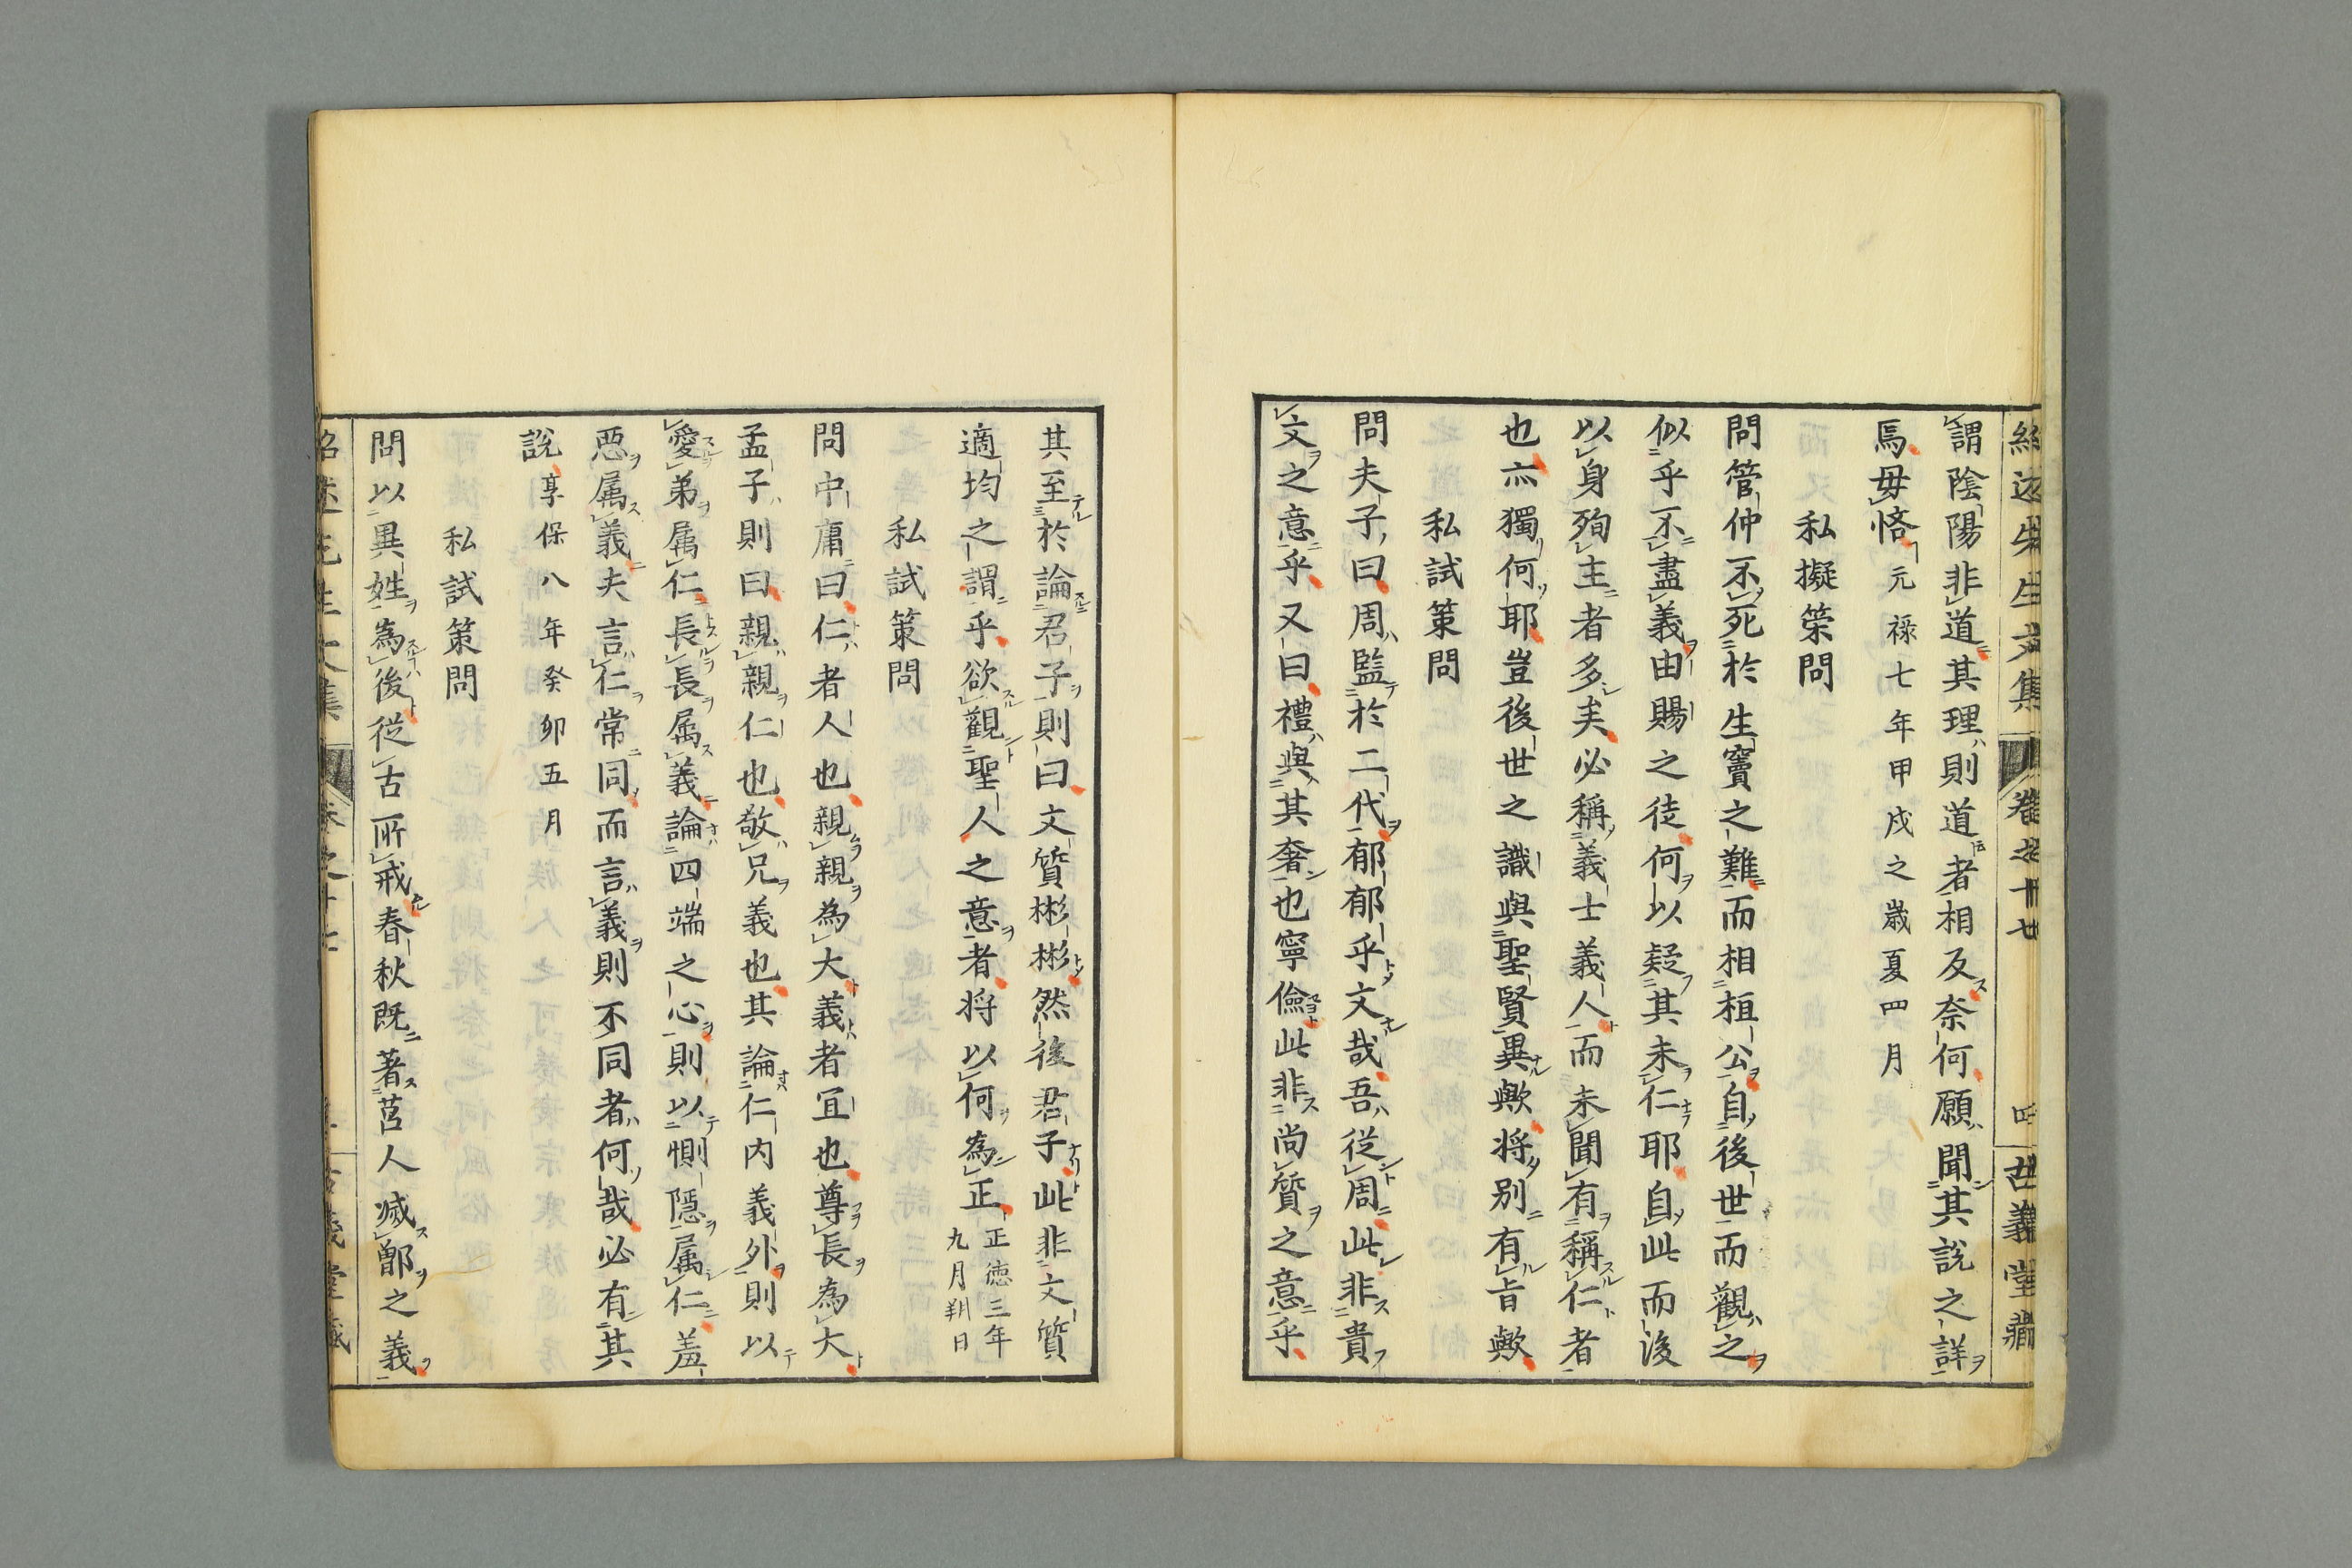 謂陰陽非道其理則道者相反奈何願聞其說之詳
焉毋悋元禄七年甲戌之嵗夏四月
私擬策問
問管仲不死於生竇之難而相桓公自後世而觀之
似乎不盡義由賜之徒何以疑其未仁耶自此而後
以身殉主者多矣必稱義士義人而未聞有稱仁者
也亦獨何耶豈後世之識與聖賢異歟将别有旨歟
私試策問
問夫子曰周監於二代郁郁乎文哉吾從周此非貴
文之意乎又曰禮與其奢也寧儉此非尚質之意乎
其至於論君子則曰文質彬彬然後君子此非文質
適均之謂乎欲觀聖人之意者将以何為正正徳三年九月朔日
私試策問
問中庸曰仁者人也親親為大義者宜也尊長為大
孟子則曰親親仁也敬兄義也其論仁内義外則以
愛弟属仁長長属義論四端之心則以惻隠属仁羞
惡属義夫言仁常同而言義則不同者何哉必有其
説享保八年癸卯五月
私試策問
問以異姓為後従古所戒春秋既著莒人滅鄫之義